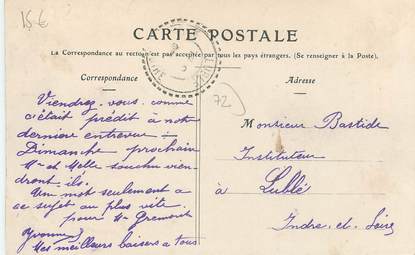 15 €
CARTE POSTALE
La Correspondance au recto n'est pas acceptée par tous les pays étrangers. (Se renseigner à la Poste).
Correspondance
Adresse
72
Viendrez-vous comme
c'était prédit à notre
dernière entrevue ÷
Dimanche prochain
Mr et Melle viendront
ils.
Un mot seulement a
ce sujet au plus vite.
pour Mr Gremont
Yvonne
Mes meilleurs baisers a tous
Monsieur Bastide
Instituteur
à Lublé
Indre-et-Loire